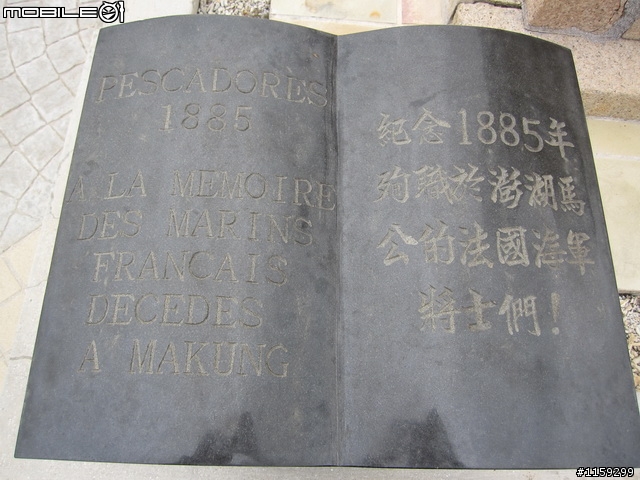 mobile01
PESCADORES
1885
A LA MEMOIRE
DES MARINS
FRANCAIS
DECEDES
A' MAKUNG
紀念1885年
殉職於澎湖馬
公的法國海軍
將士們!
#1159299